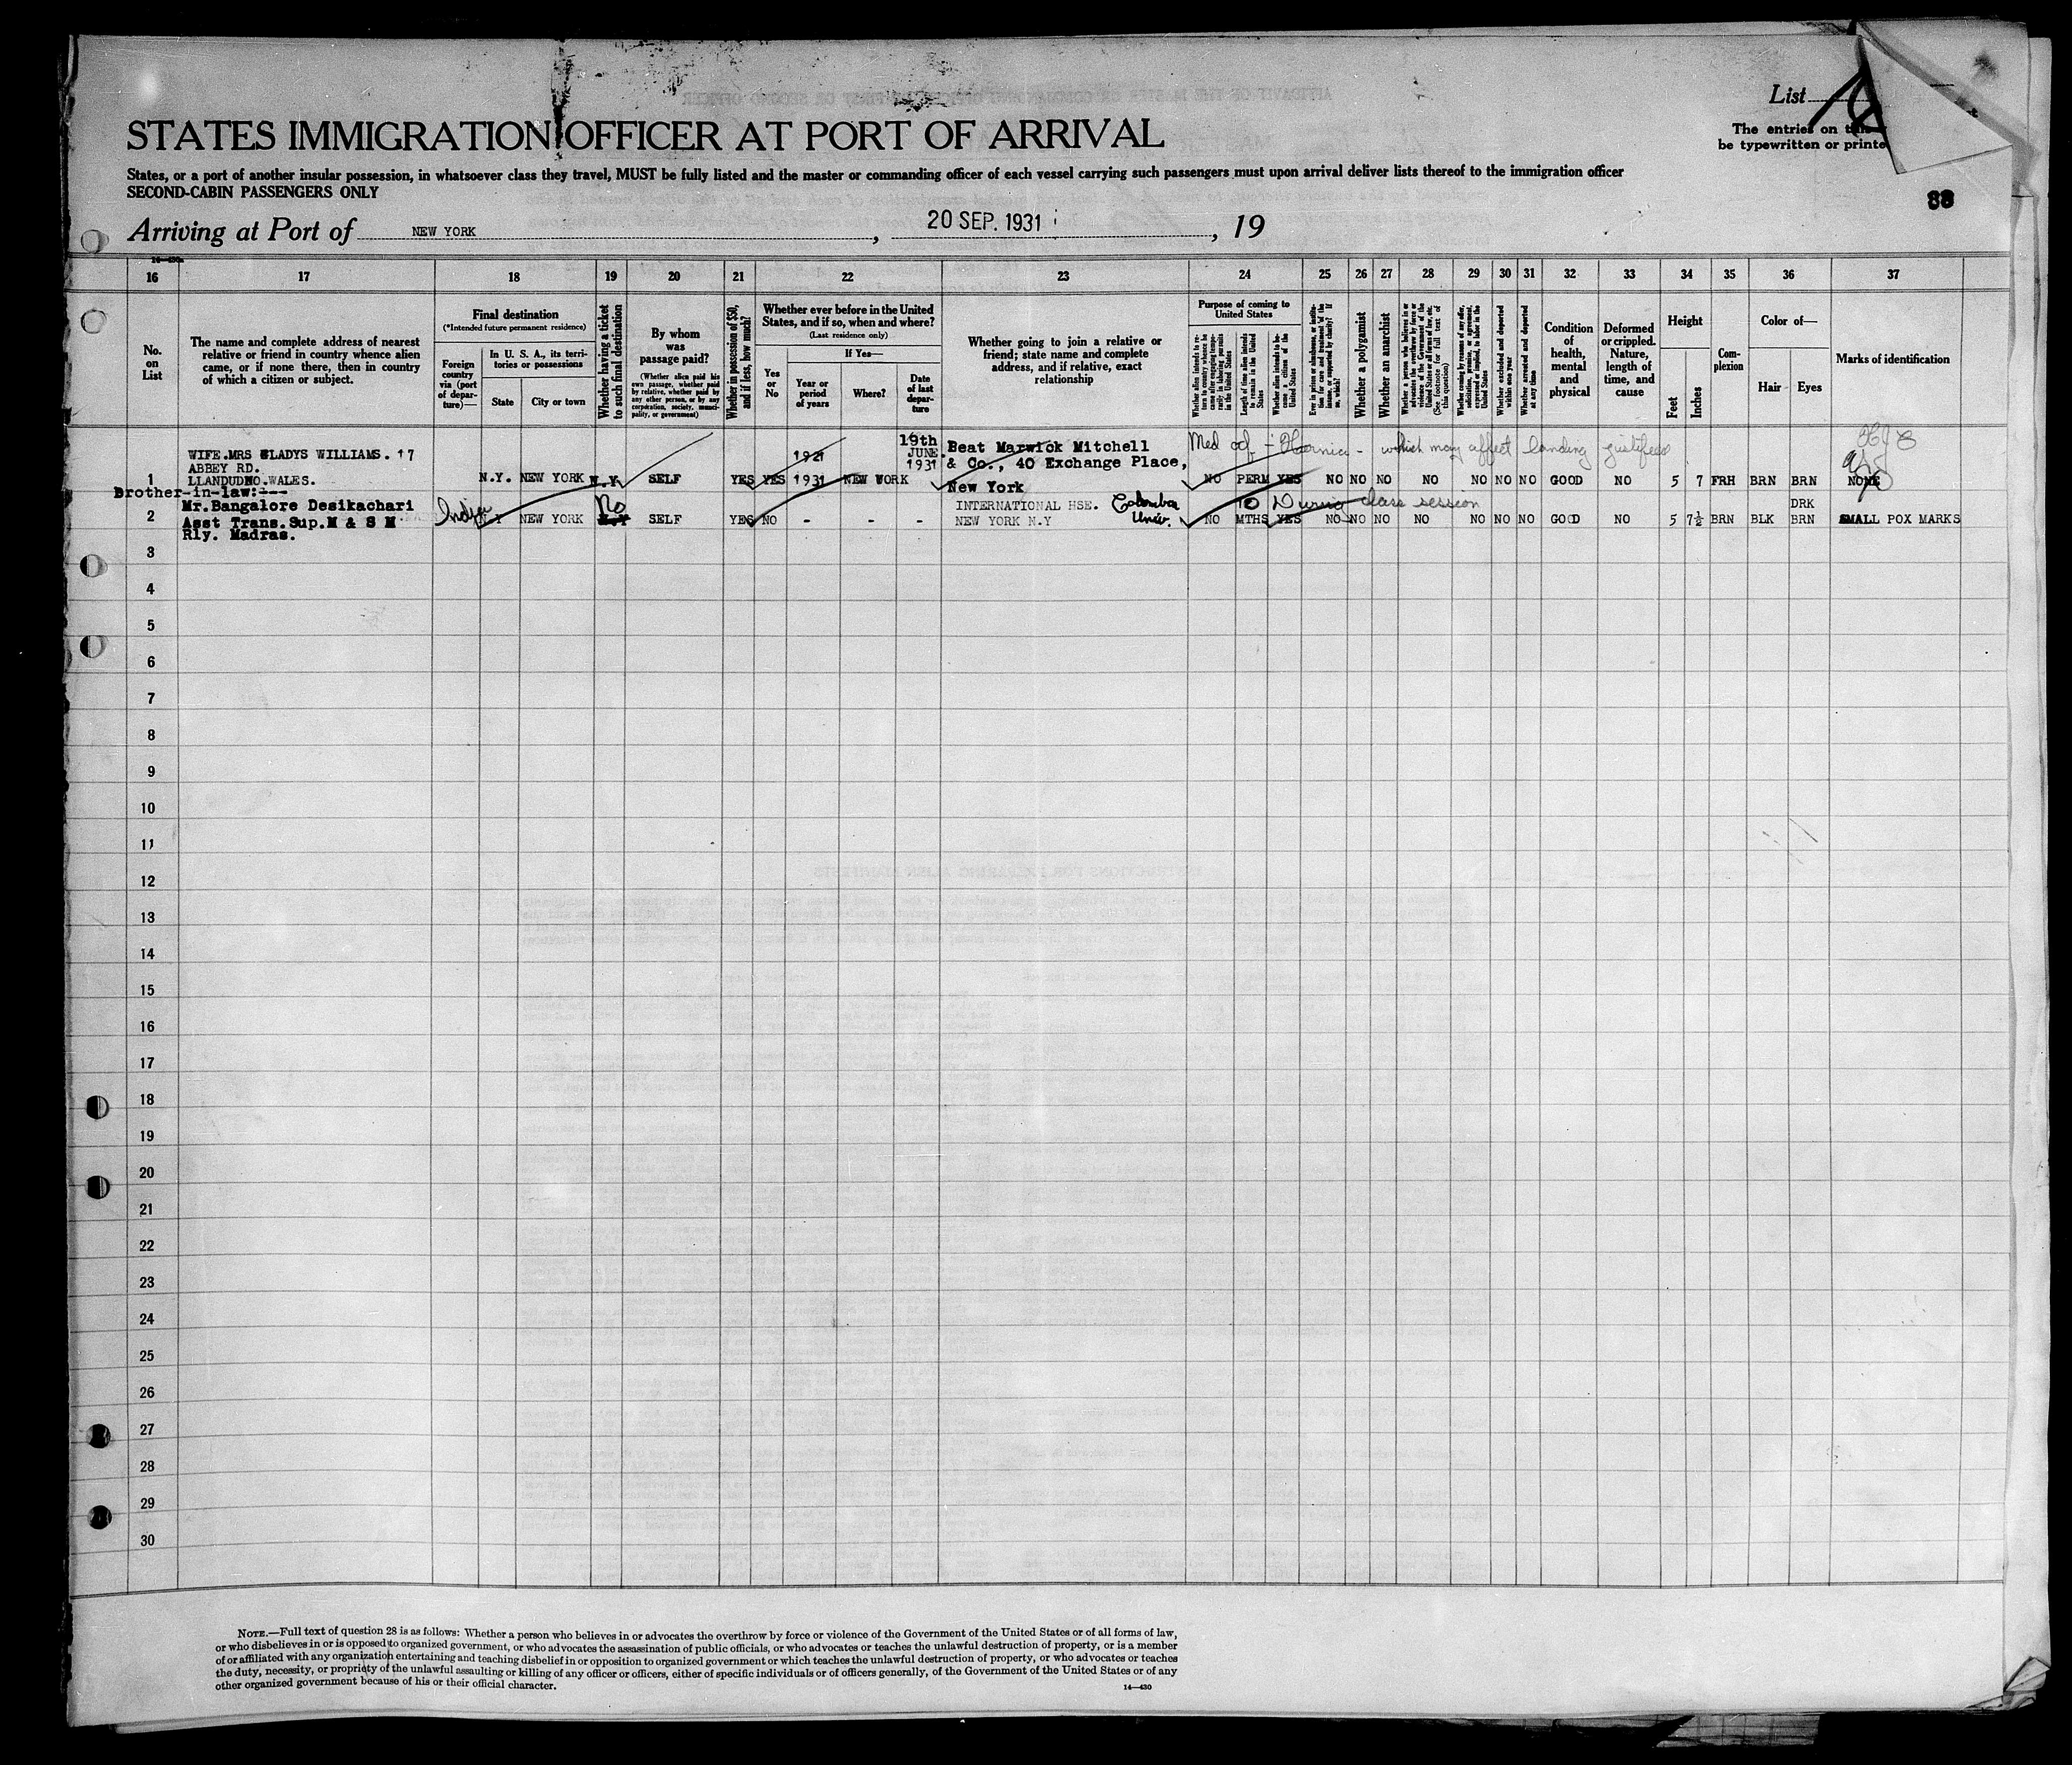 List
The entries on this
be typewritten or printe
STATES IMMIGRATION OFFICER AT PORT OF ARRIVAL
States, or a port of another insular possession, in whatsoever class they travel, MUST be fully listed and the master or commanding officer of each vessel carrying such passengers must upon arrival deliver lists thereof to the immigration officer
SECOND-CABIN PASSENGERS ONLY
88
Arriving at Port of NEW YORK, 20 SEP. 1931, 19
16 17 18 19 20 21 22 23 24 25 26 27 28 29 30 31 32 33 34 35 36 37
No. on List
The name and complete address of nearest relative or friend in country whence alien came, or if none there, then in country of which a citizen or subject.
Final destination
(*Intended future permanent residence)
Foreign country via (port of departure)—
In U. S. A., its territories or possessions
State
City or town
Whether having a ticket to such final destination
By whom was passage paid?
(Whether alien paid his own passage, whether paid by relative, whether paid by any other person, or by any corporation, society, municipality, or government)
Whether in possession of $50, and if less, how much?
Whether ever before in the United States, and if so, when and where?
(Last residence only)
Yes or No
If Yes—
Year or period of years
Where?
Date of last departure
Whether going to join a relative or friend; state name and complete address, and if relative, exact relationship
Purpose of coming to United States
Whether alien intends to return to country whence he came after engaging temporarily in laboring pursuits in the United States
Length of time alien intends to remain in the United States
Whether alien intends to become a citizen of the United States
Ever in prison or almshouse, or institution for care and treatment of the insane, or supported by charity? If so, which?
Whether a polygamist
Whether an anarchist
Whether a person who believes in or advocates the overthrow by force or violence of the Government of the United States or all forms of law, etc. (See footnote for full text of this question)
Whether coming by reason of any offer, solicitation, promise, or agreement, expressed or implied, to labor in the United States
Whether excluded and deported within one year
Whether arrested and deported at any time
Condition of health, mental and physical
Deformed or crippled. Nature, length of time, and cause
Height
Feet
Inches
Complexion
Color of—
Hair
Eyes
Marks of identification
WIFE.MRS GLADYS WILLIAMS. 17
ABBEY RD.
1 LLANDUDNO.WALES. N.Y. NEW YORK N.Y. SELF YES YES 1921 1931 NEW YORK 19th JUNE 1931
Beat Marwick Mitchell
& Co., 40 Exchange Place,
New York
Med cf - Hernia - which may affect landing justifees
NO PERM YES NO NO NO NO NO NO NO GOOD NO 5 7 FRH BRN BRN NONE
Brother-in-law:---
Mr.Bangalore Desikachari
2 Asst Trans.Sup.M & S M
Rly. Madras.
India N Y NEW YORK No SELF YES NO - - -
INTERNATIONAL HSE. Columbia
NEW YORK N.Y Univ.
10 During class session
NO MTHS YES NO NO NO NO NO NO NO GOOD NO 5 7½ BRN BLK DRK BRN SMALL POX MARKS
3
4
5
6
7
8
9
10
11
12
13
14
15
16
17
18
19
20
21
22
23
24
25
26
27
28
29
30
NOTE.—Full text of question 28 is as follows: Whether a person who believes in or advocates the overthrow by force or violence of the Government of the United States or of all forms of law,
or who disbelieves in or is opposed to organized government, or who advocates the assassination of public officials, or who advocates or teaches the unlawful destruction of property, or is a member
of or affiliated with any organization entertaining and teaching disbelief in or opposition to organized government or which teaches the unlawful destruction of property, or who advocates or teaches
the duty, necessity, or propriety of the unlawful assaulting or killing of any officer or officers, either of specific individuals or of officers generally, of the Government of the United States or of any
other organized government because of his or their official character.
14—430